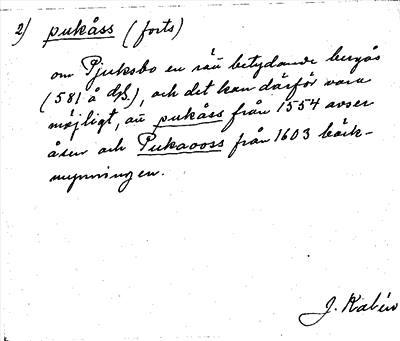 2) pukåss (forts)
om Pjuksbo en rätt betydande bergås
(581 å db.), och det kan därför vara
möjligt, att pukåss från 1554 avser
åsen och Pukaooss från 1603 bäck-
mynningen.
J. Kalén